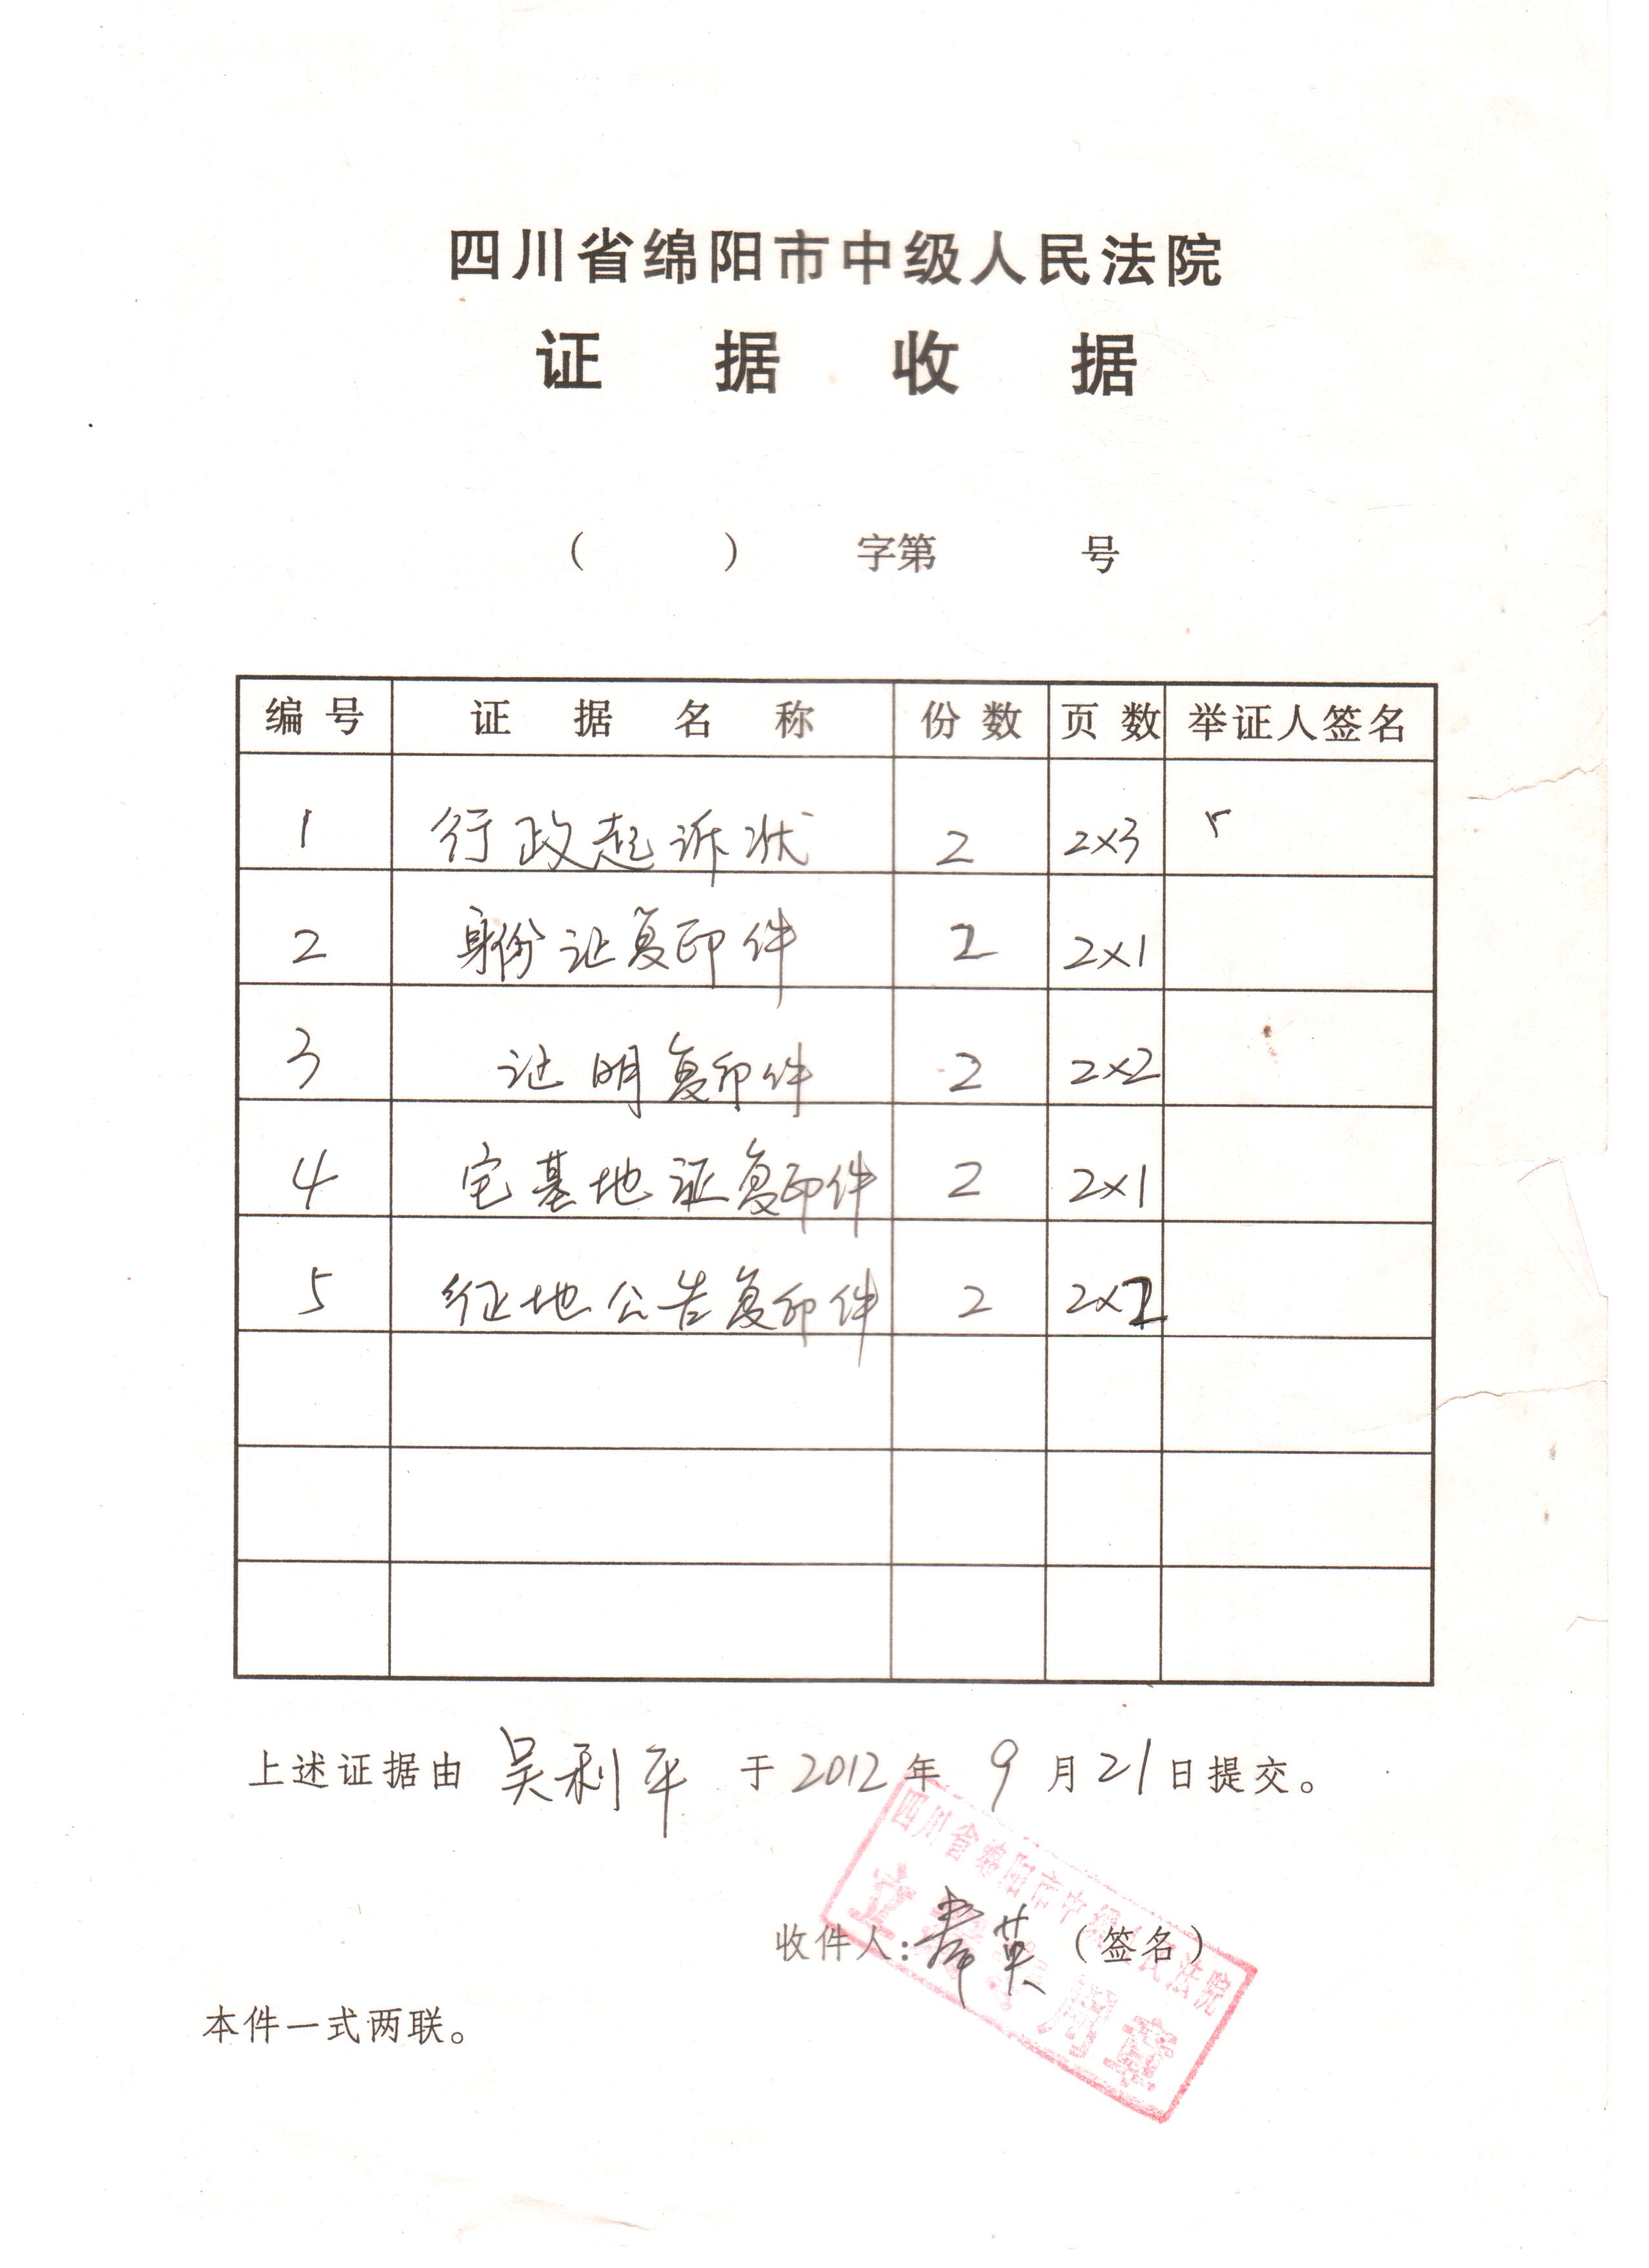 四川省绵阳市中级人民法院
证据收据
（ ） 字第 号
编号 证据名称 份数 页数 举证人签名
1 行政起诉状 2 2×3
2 身份证复印件 2 2×1
3 证明复印件 2 2×2
4 宅基地证复印件 2 2×1
5 征地公告复印件 2 2×2
上述证据由 吴利平 于2012年 9月21日提交。
四川省绵阳市中级人民法院
立案专用章
收件人: 英 （签名）
本件一式两联。